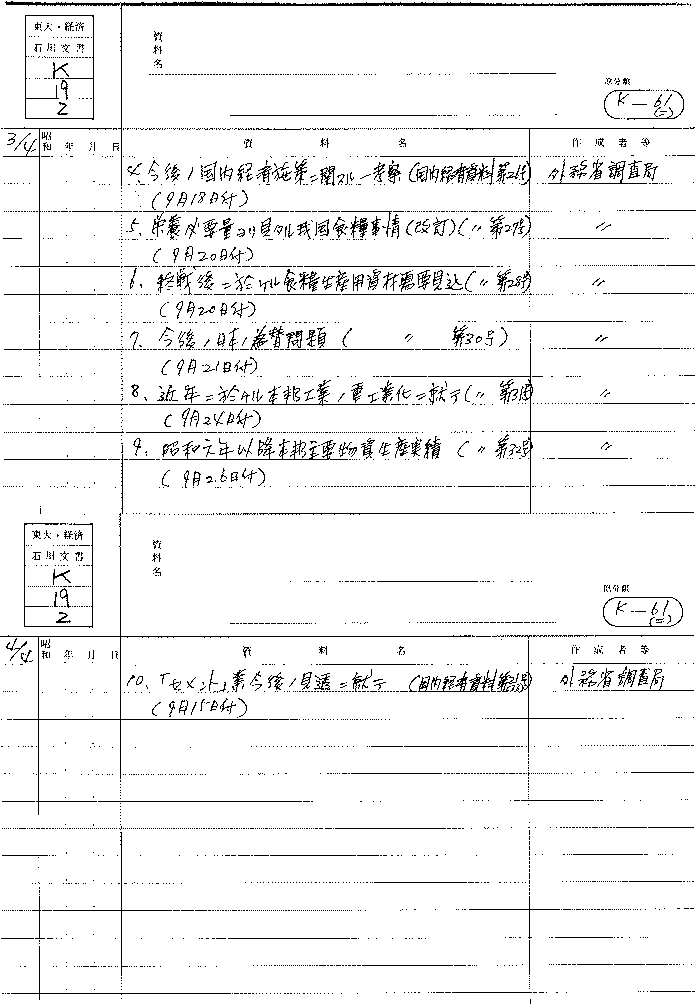 東大・経済
石川文書
K
19
2
資料名
原分類
K-61
(二)
3/4
昭和 年 月 日
資 料 名
作 成 者 等
4. 今後ノ国内経済施策ニ関スル一考察 (国内経済資料第26号)
外務省調査局
(9月18日付)
5. 栄養必要量ヨリ見タル我国食糧事情(改訂)(〃 第29号)
〃
(9月20日付)
6. 終戦後ニ於ケル食糧生産用資材需要見込(〃 第28号)
〃
(9月20日付)
7. 今後ノ日本ノ為替問題 ( 〃 第30号)
〃
(9月21日付)
8. 近年ニ於ケル本邦工業ノ重工業化ニ就テ(〃 第31号)
〃
(9月24日付)
9. 昭和元年以降本邦主要物資生産実績 (〃 第32号)
〃
(9月26日付)
東大・経済
石川文書
K
19
2
資料名
原分類
K-61
(二)
4/4
昭和 年 月 日
資 料 名
作 成 者 等
10. 「セメント」業今後ノ見透ニ就テ (国内経済資料
外務省調査局
(9月15日付)